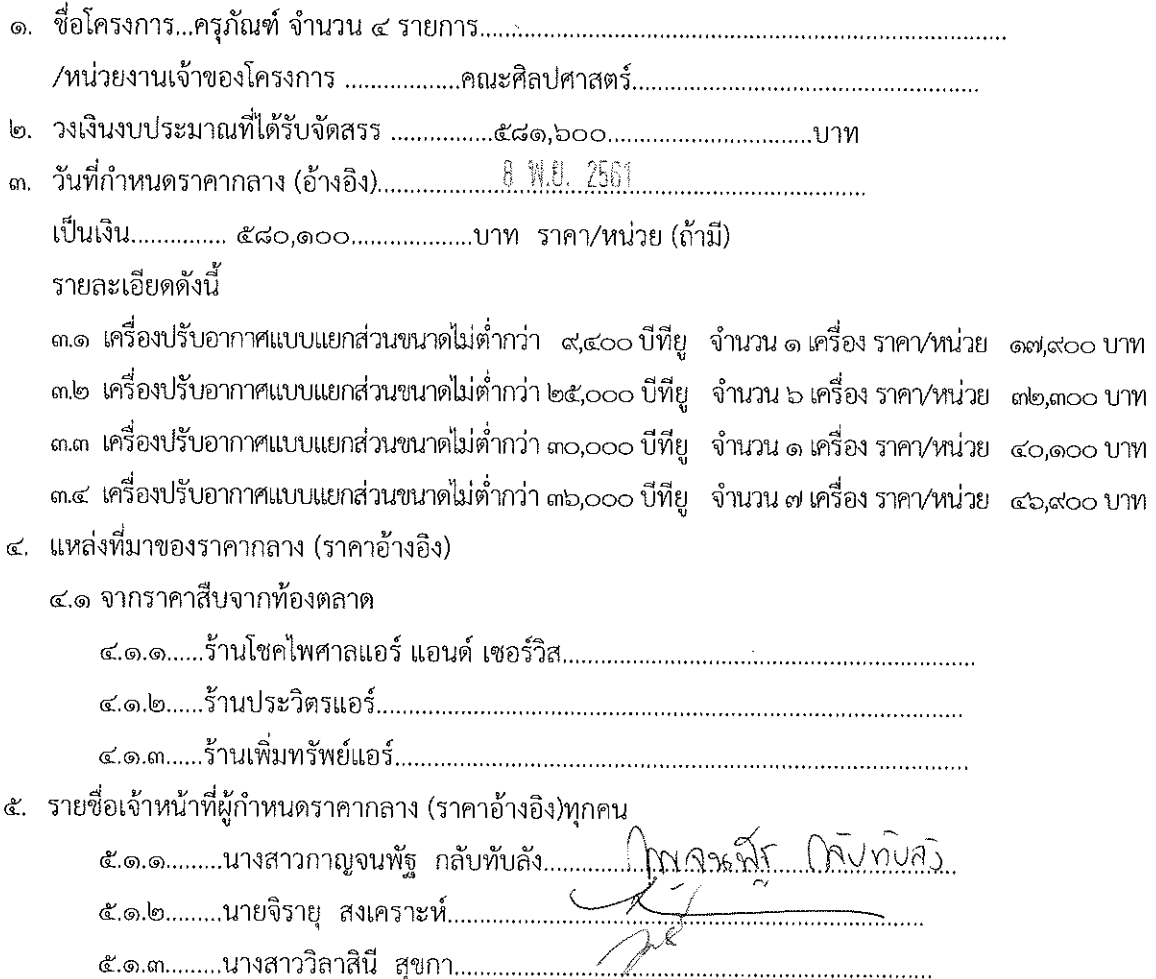 ๑. ชื่อโครงการ...ครุภัณฑ์ จำนวน ๔ รายการ...
/หน่วยงานเจ้าของโครงการ ...คณะศิลปศาสตร์...
๒. วงเงินงบประมาณที่ได้รับจัดสรร ...๕๘๑,๖๐๐...บาท
๓. วันที่กำหนดราคากลาง (อ้างอิง)...8 พ.ย. 2561...
เป็นเงิน... ๕๘๐,๑๐๐...บาท ราคา/หน่วย (ถ้ามี)
รายละเอียดดังนี้
๓.๑ เครื่องปรับอากาศแบบแยกส่วนขนาดไม่ต่ำกว่า ๙,๔๐๐ บีทียู จำนวน ๑ เครื่อง ราคา/หน่วย ๑๗,๙๐๐ บาท
๓.๒ เครื่องปรับอากาศแบบแยกส่วนขนาดไม่ต่ำกว่า ๒๕,๐๐๐ บีทียู จำนวน ๖ เครื่อง ราคา/หน่วย ๓๒,๓๐๐ บาท
๓.๓ เครื่องปรับอากาศแบบแยกส่วนขนาดไม่ต่ำกว่า ๓๐,๐๐๐ บีทียู จำนวน ๑ เครื่อง ราคา/หน่วย ๔๐,๑๐๐ บาท
๓.๔ เครื่องปรับอากาศแบบแยกส่วนขนาดไม่ต่ำกว่า ๓๖,๐๐๐ บีทียู จำนวน ๗ เครื่อง ราคา/หน่วย ๔๖,๙๐๐ บาท
๔. แหล่งที่มาของราคากลาง (ราคาอ้างอิง)
๔.๑ จากราคาสืบจากท้องตลาด
๔.๑.๑......ร้านโชคไพศาลแอร์ แอนด์ เซอร์วิส...
๔.๑.๒......ร้านประวิตรแอร์...
๔.๑.๓......ร้านเพิ่มทรัพย์แอร์...
๕. รายชื่อเจ้าหน้าที่ผู้กำหนดราคากลาง (ราคาอ้างอิง)ทุกคน
๕.๑.๑........นางสาวกาญจนพัฐ กลับทับลัง...กาญจนพัฐ กลับทับลัง
๕.๑.๒........นายจิรายุ สงเคราะห์...
๕.๑.๓........นางสาววิลาสินี สุขกา...